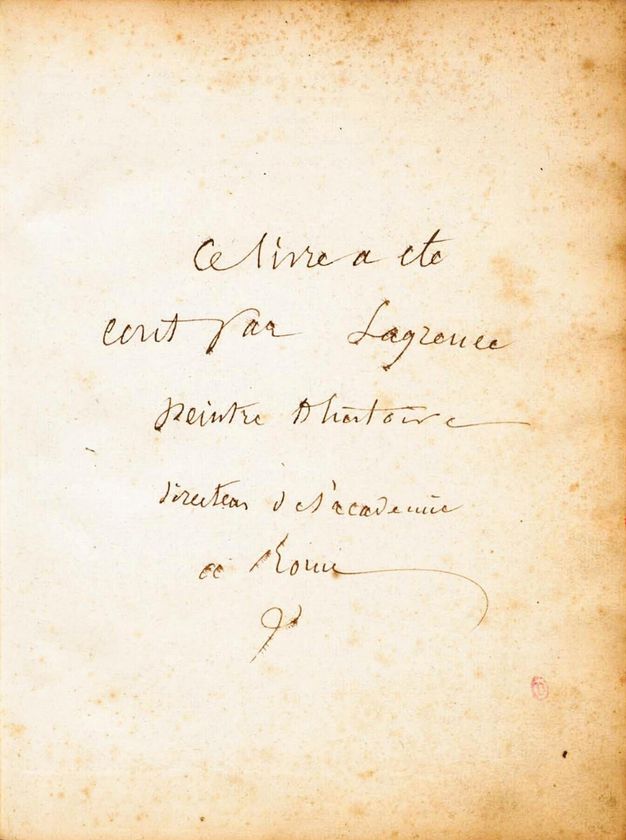 Ce livre a ete
ecrit par Lagrenee
peintre d'histoire
directeur de l'academie
a Rome